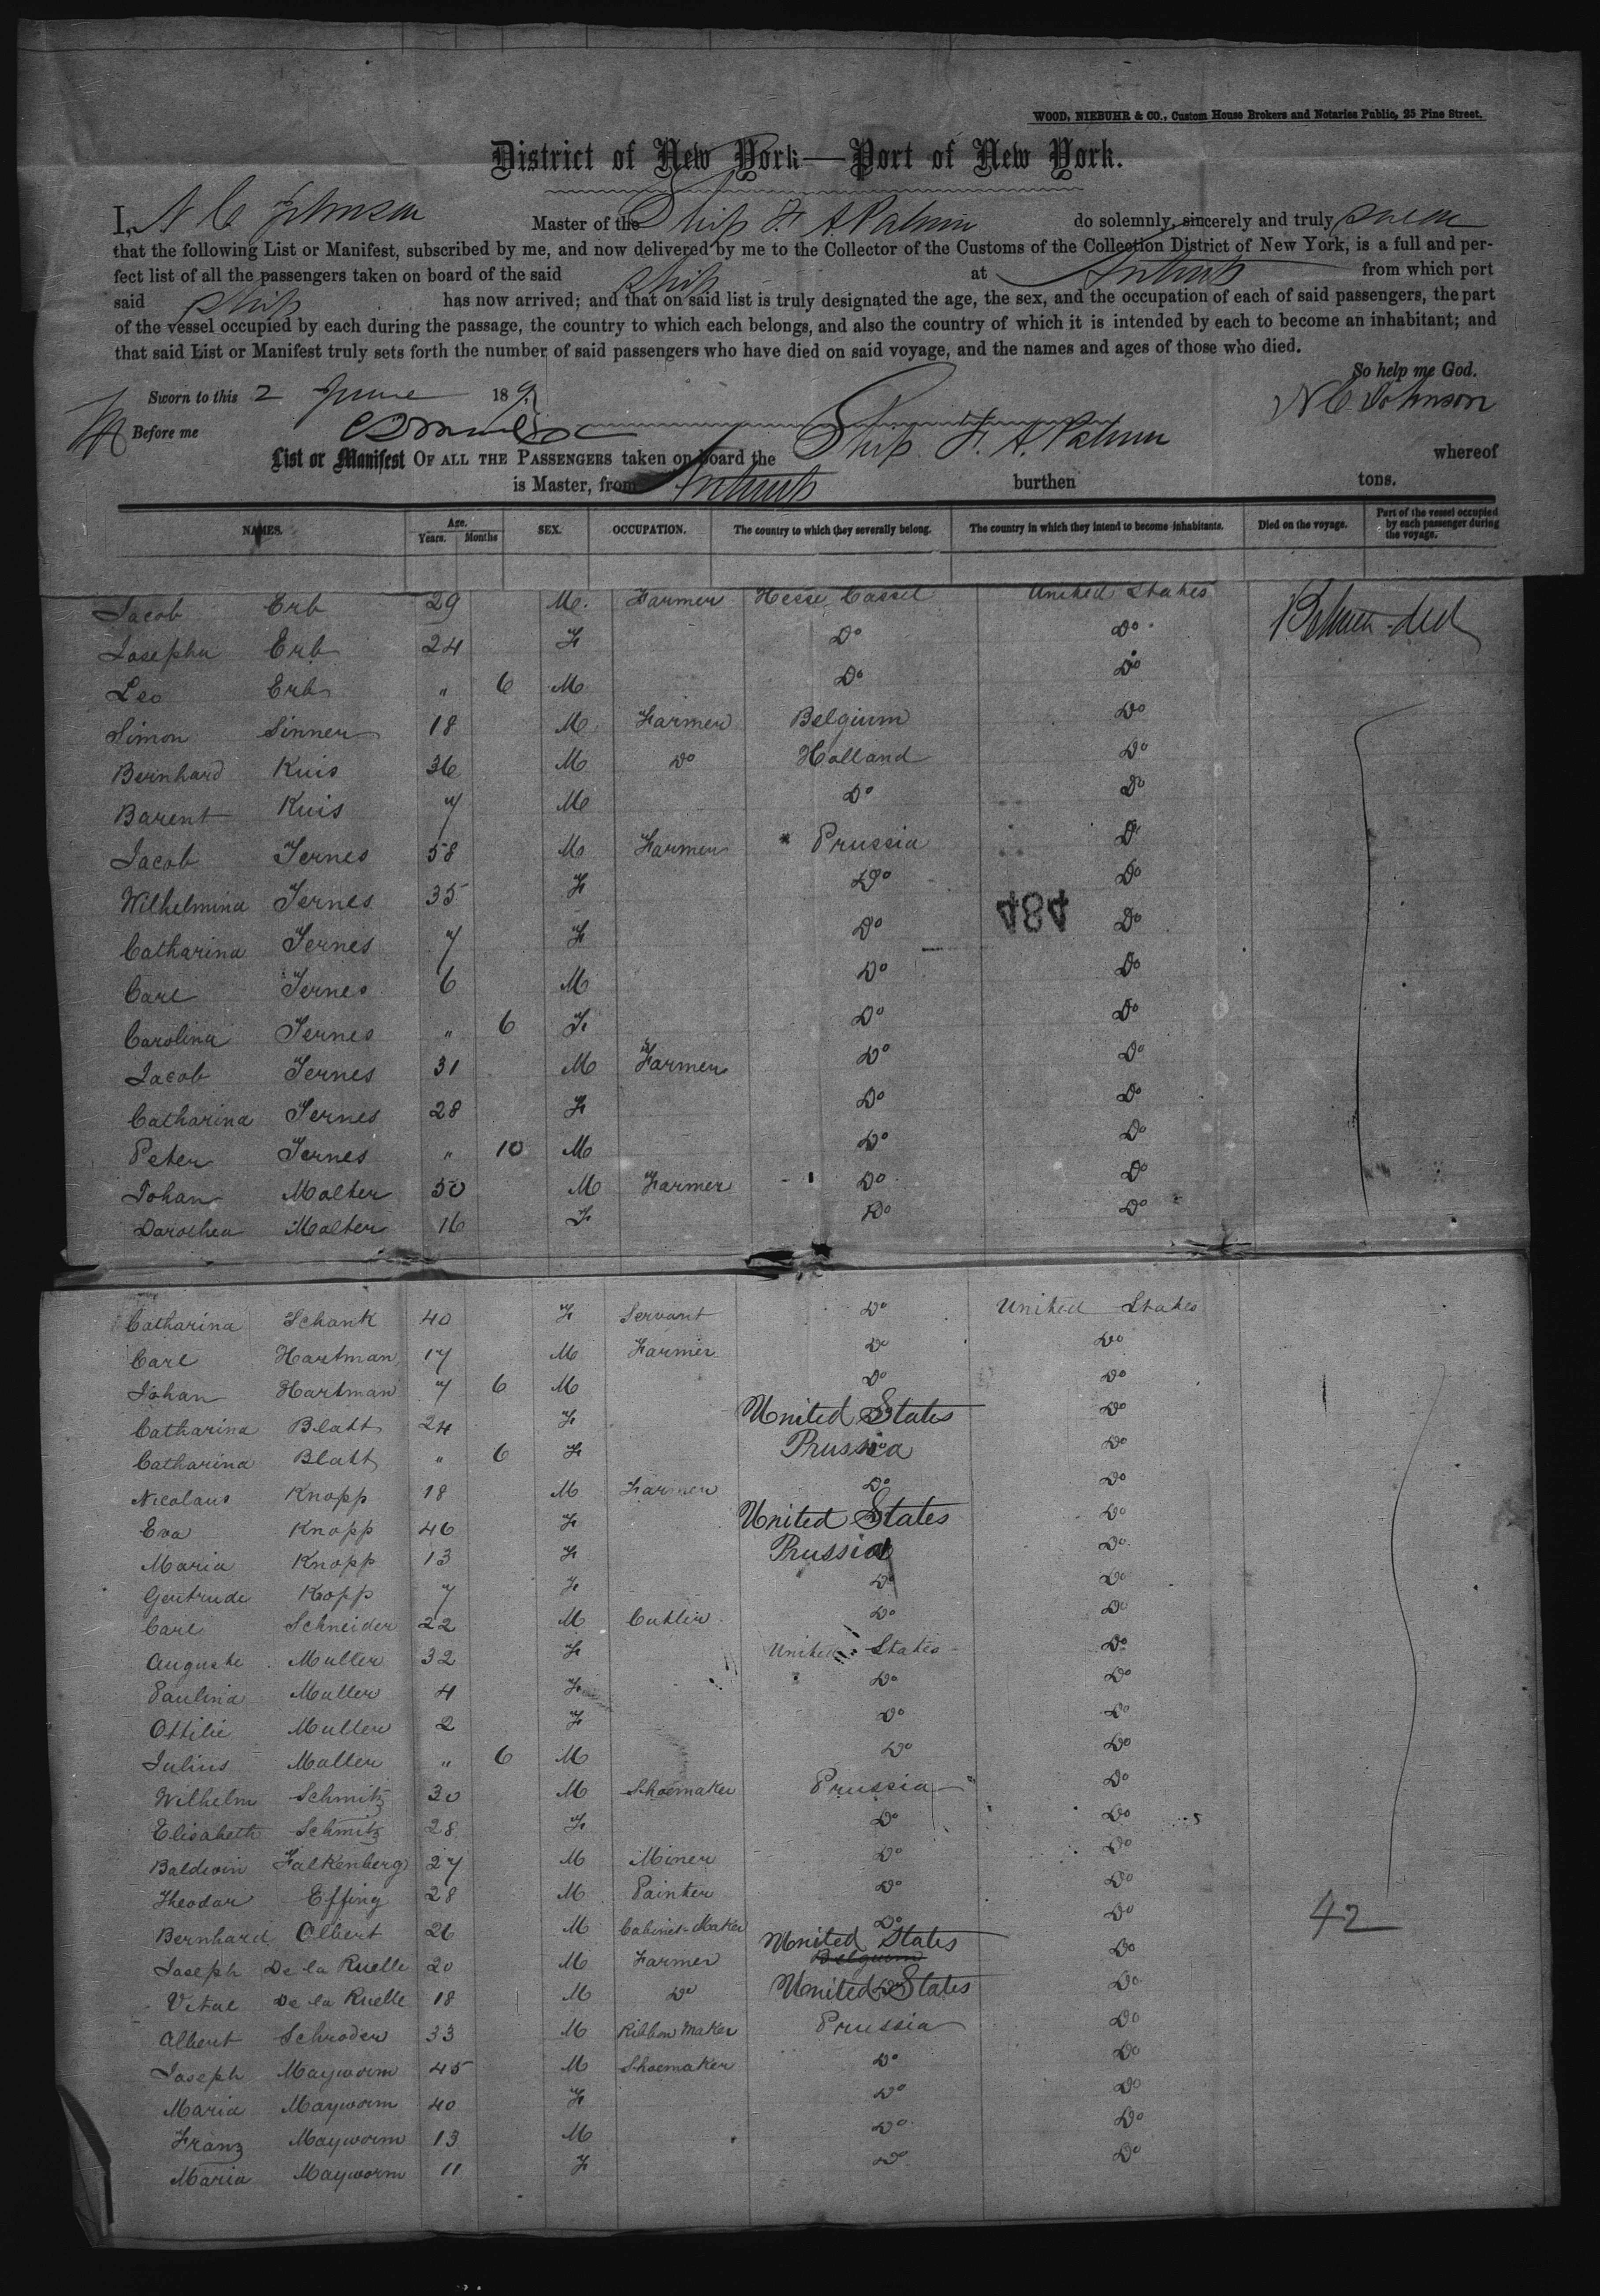 WOOD, NIEBUHR & CO., Custom House Brokers and Notaries Public, 25 Pine Street.
District of New York—Port of New York.
I, N C Johnson Master of the Ship F. A. Palmer do solemnly, sincerely and truly swear
that the following List or Manifest, subscribed by me, and now delivered by me to the Collector of the Customs of the Collection District of New York, is a full and per-
fect list of all the passengers taken on board of the said Ship at Antwerp from which port
said Ship has now arrived; and that on said list is truly designated the age, the sex, and the occupation of each of said passengers, the part
of the vessel occupied by each during the passage, the country to which each belongs, and also the country of which it is intended by each to become an inhabitant; and
that said List or Manifest truly sets forth the number of said passengers who have died on said voyage, and the names and ages of those who died.
So help me God.
Sworn to this 2 June 18
N C Johnson
Before me
List or Manifest OF ALL THE PASSENGERS taken on board the Ship F. A. Palmer whereof
is Master, from Antwerp burthen tons.
NAMES. Age. Years. Months SEX. OCCUPATION. The country to which they severally belong. The country in which they intend to become inhabitants. Died on the voyage. Part of the vessel occupied by each passenger during the voyage.
Jacob Erb 29 M. Farmer Hesse Cassel United States
Josepha Erb 24 F Do Do
Leo Erb " 6 M Do Do
Simon Sinner 18 M Farmer Belgium Do
Bernhard Kuis 36 M Do Holland Do
Barent Kuis 7 M Do Do
Jacob Jernes 58 M Farmer Prussia Do
Wilhelmina Jernes 35 F Do Do
484
Catharina Jernes 7 F Do Do
Carl Jernes 6 M Do Do
Carolina Jernes " 6 F Do Do
Jacob Jernes 31 M Farmer Do Do
Catharina Jernes 28 F Do Do
Peter Jernes " 10 M Do Do
Johan Malter 50 M Farmer Do Do
Dorothea Malter 16 F Do Do
Catharina Schank 40 F Servant Do United States
Carl Hartman 17 M Farmer Do Do
Johan Hartman 7 6 M Do Do
Catharina Blatt 24 F United States Do
Catharina Blatt " 6 F Prussia Do
Nicolaus Knopp 18 M Farmer Do Do
Eva Knopp 46 F United States Do
Maria Knopp 13 F Prussia Do
Gertrude Kopp 7 F Do Do
Carl Schneider 22 M Cutler Do Do
Auguste Muller 32 F United States Do
Paulina Muller 4 F Do Do
Ottilie Muller 2 F Do Do
Julius Muller " 6 M Do Do
Wilhelm Schmitz 30 M Shoemaker Prussia Do
Elisabeth Schmitz 28 F Do Do
Baldwin Falkenberg 27 M Miner Do Do
Theodor Effing 28 M Painter Do Do
42
Bernhard Olbert 26 M Cabinet-Maker Do Do
Joseph De la Ruelle 20 M Farmer United States Belgium Do
Vital De la Ruelle 18 M Do United States Do
Albert Schroder 33 M Ribbon Maker Prussia Do
Joseph Mayworm 45 M Shoemaker Do Do
Maria Mayworm 40 F Do Do
Franz Mayworm 13 M Do Do
Maria Mayworm 11 F Do Do